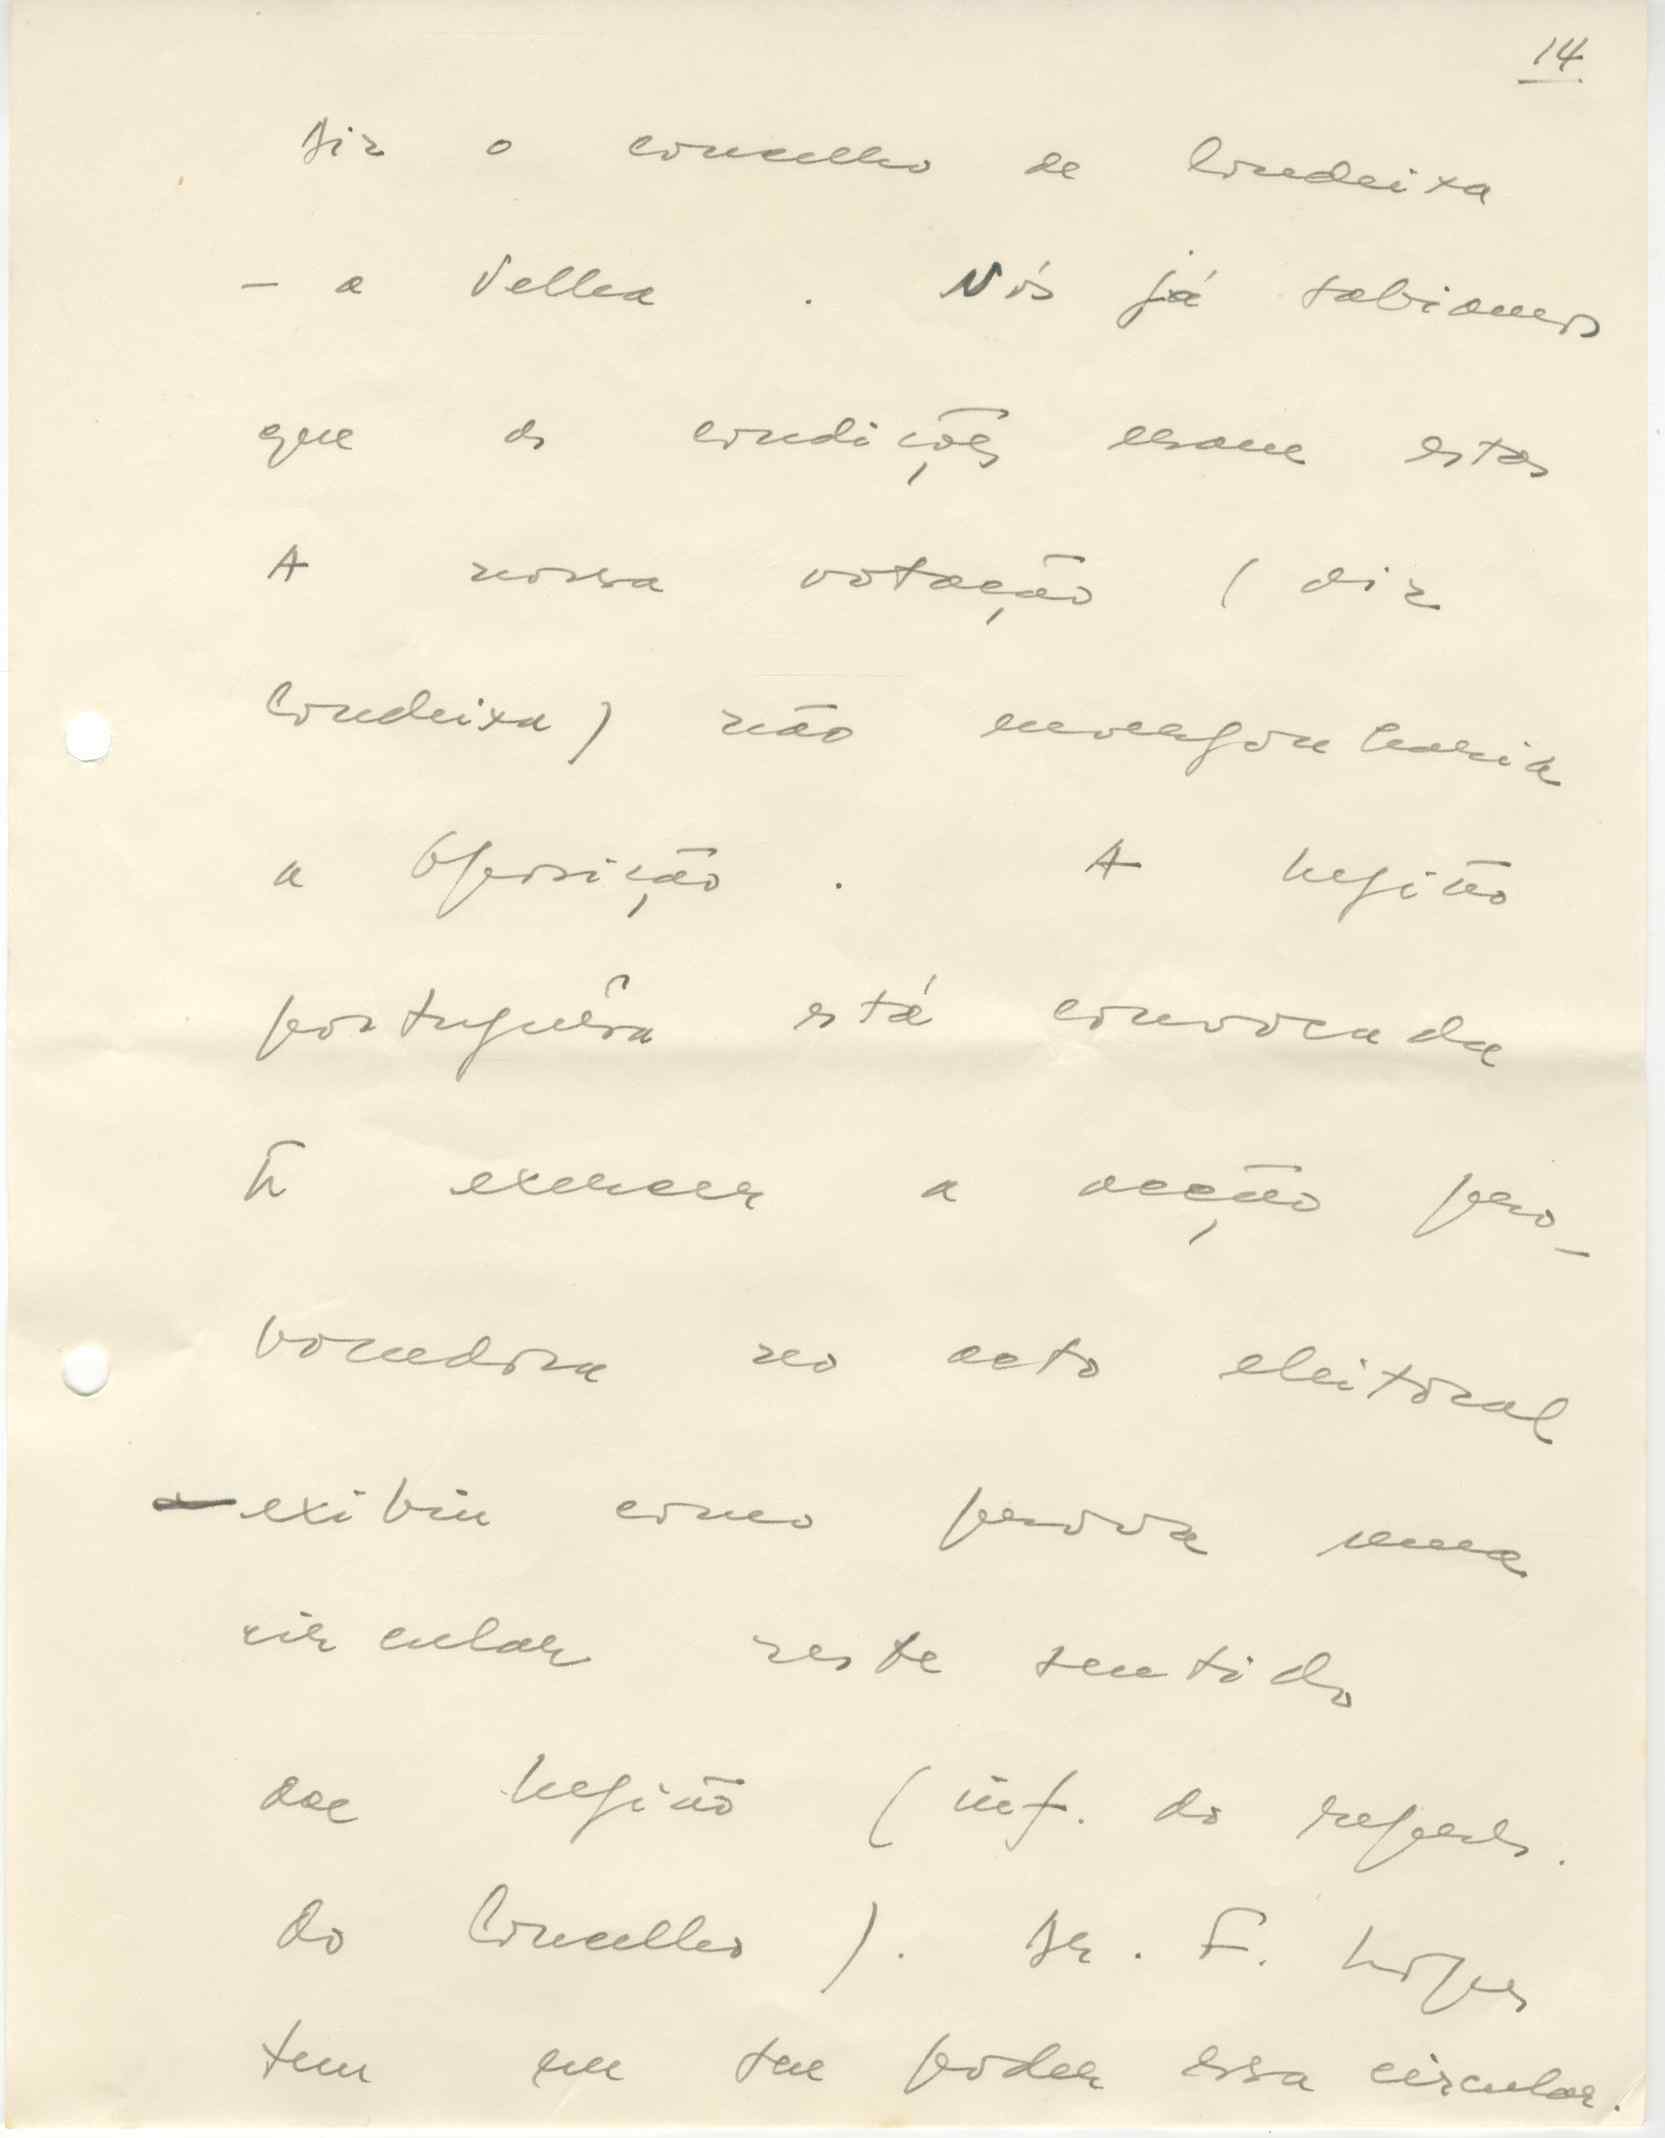 14
Diz o concelho de Condeixa
- a Velha . Nós já sabiamos
que as condições eram estas
A nossa votação ( diz
Condeixa ) não envergonharia
a Oposição . A Legião
portuguêsa está convocada
p̄ exercer a acção pro-
vocadora no acto eleitoral
exibiu como prova uma
circular neste sentido
da Legião ( inf. do respons.
do Concelho ) . Dr. F. Lopes
tem em seu poder essa circular.